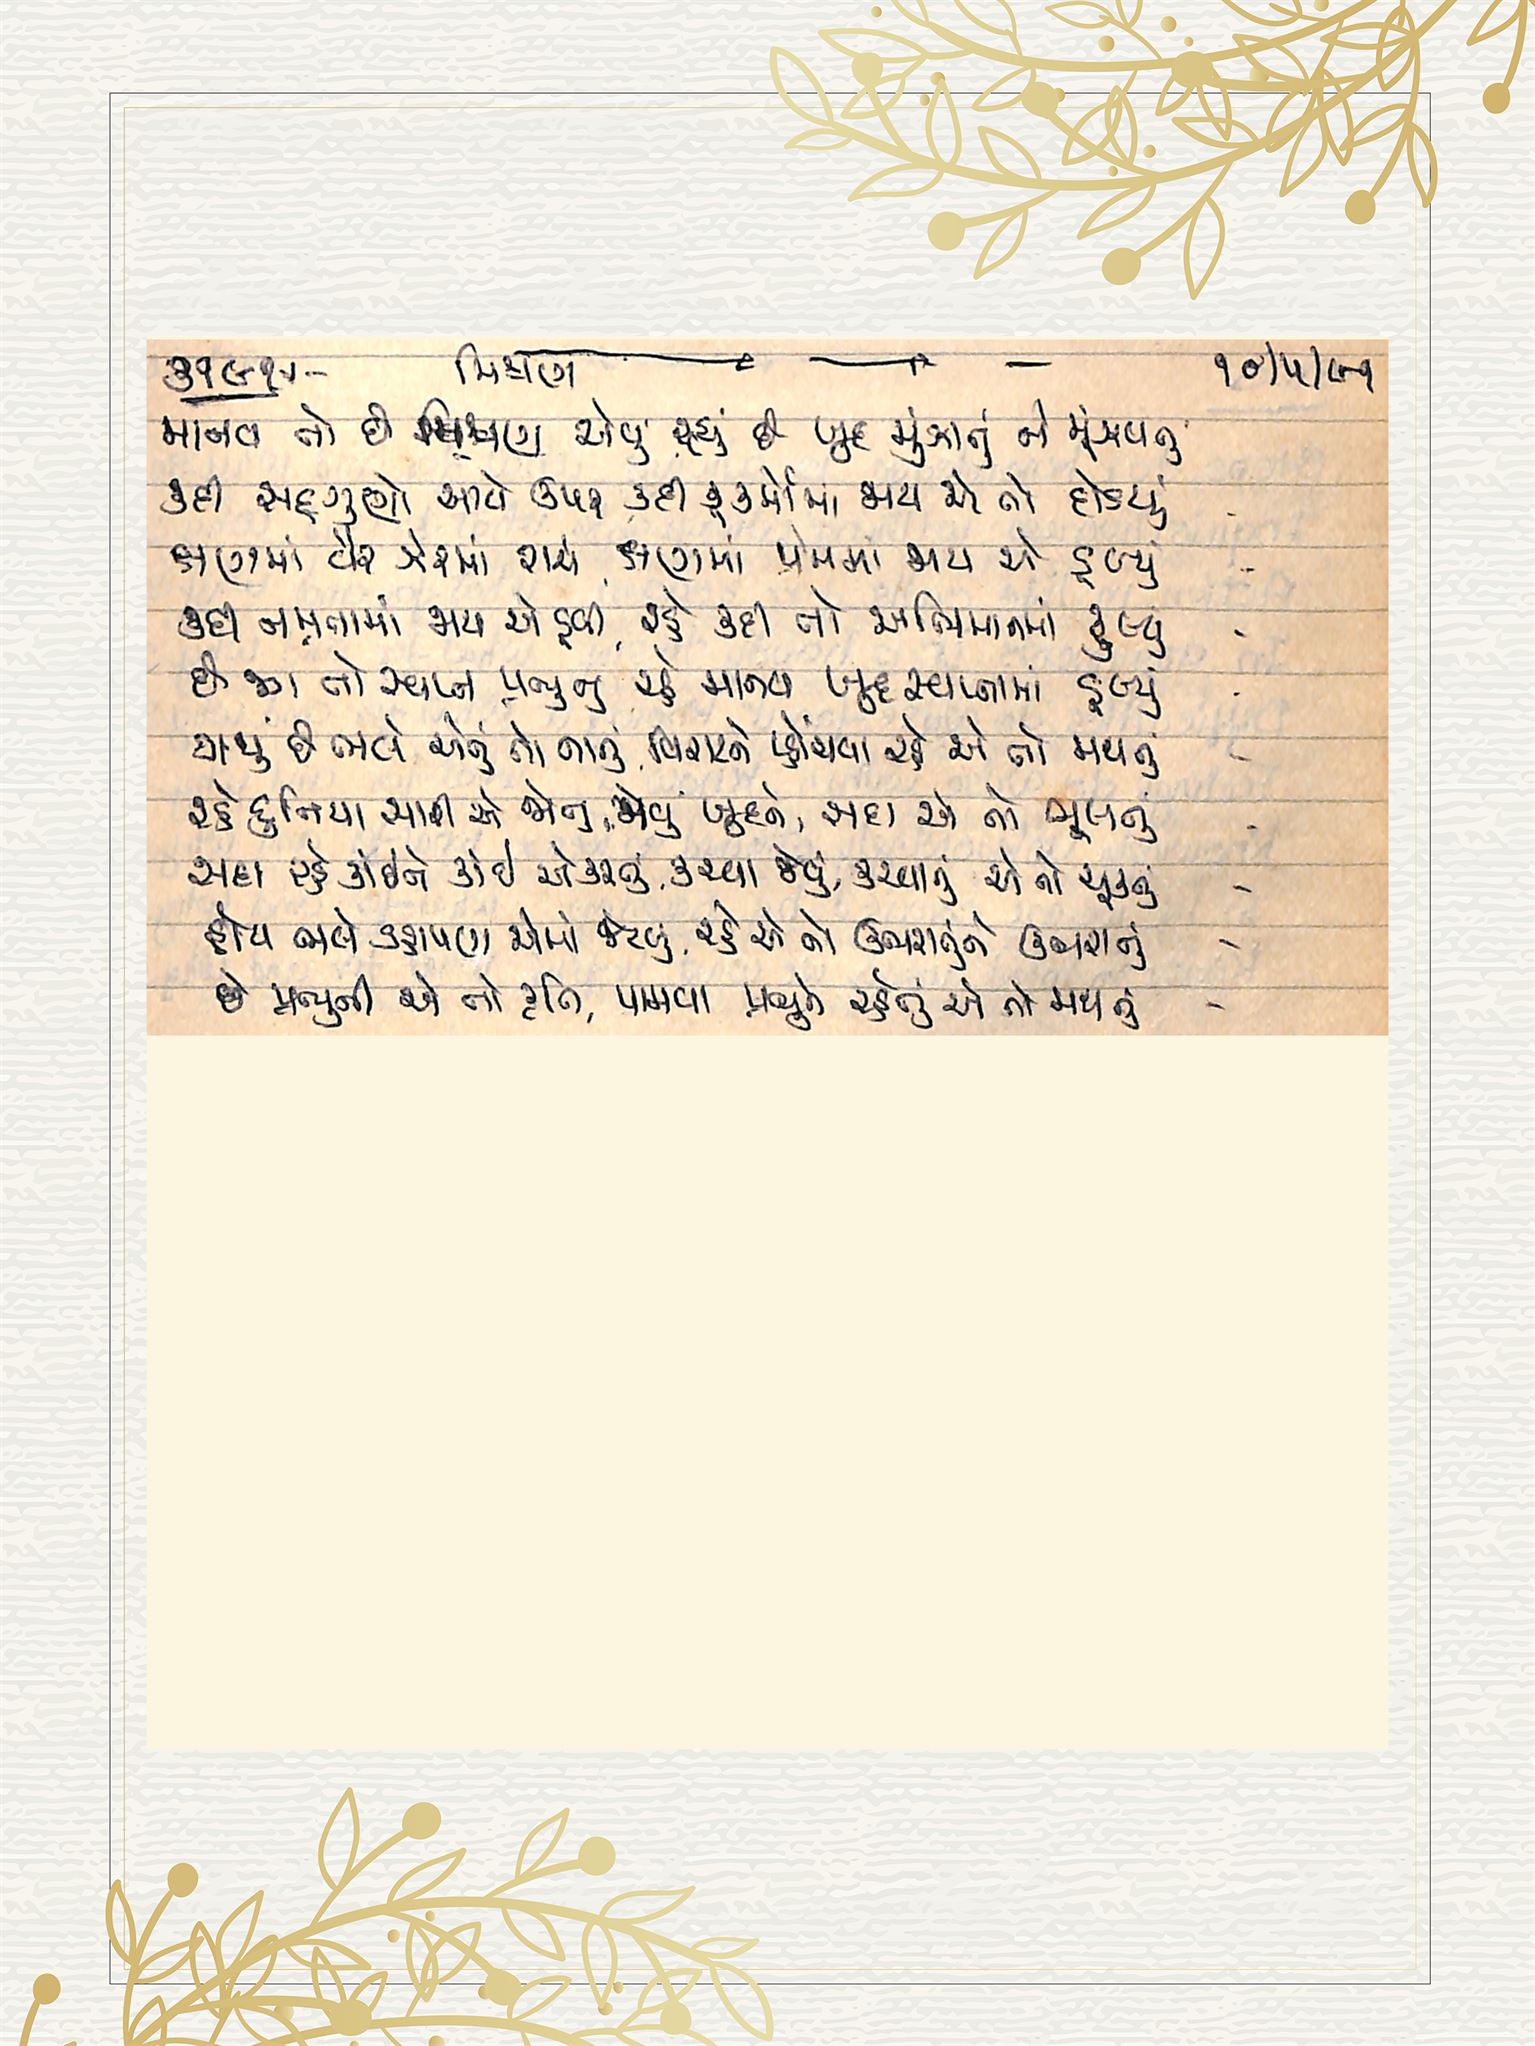 ૩૧૯૧ :- મિશ્રણ ૧૦/૫/૯૧
માનવ તો છે મિશ્રણ એવું રહ્યું છે ખુદ મુંઝાતું ને મૂંઝવતું
કદી સદ્ગુણો આવે ઉપર કદી કૂકર્મોમાં જાય એ તો દોડયું -
ક્ષણમાં વેર ઝેરમાં રાચે, ક્ષણમાં પ્રેમમાં જાય એ ડૂબ્યું -
કદી નમ્રતામાં જાય એ ડૂબી, રહે કદી તો અભિમાનમાં ડુલ્યુ -
છે જગ તો સ્વપ્ન પ્રભુનુ રહે માનવ ખુદ સ્વપ્નામાં ડૂબ્યું -
ગજું છે ભલે એનું તો નાનું, વિરાટને પ્હોંચવા રહે એ તો મથતું -
રહે દુનિયા સારી એ જોતુ, જોવું ખુદને, સદા એ તો ભૂલતું -
સદા રહે કાંઈને કાંઈ એ કરતું, કરવા જેવું, કરવાનું એ તો ચૂકતું -
હોય ભલે ડહાપણ એમાં જેટલું, રહે એ તો ઉભરાતુંને ઉભરાતું -
છે પ્રભુની એ તો કૃતિ, પામવા પ્રભુને રહેતું એ તો મથતું -